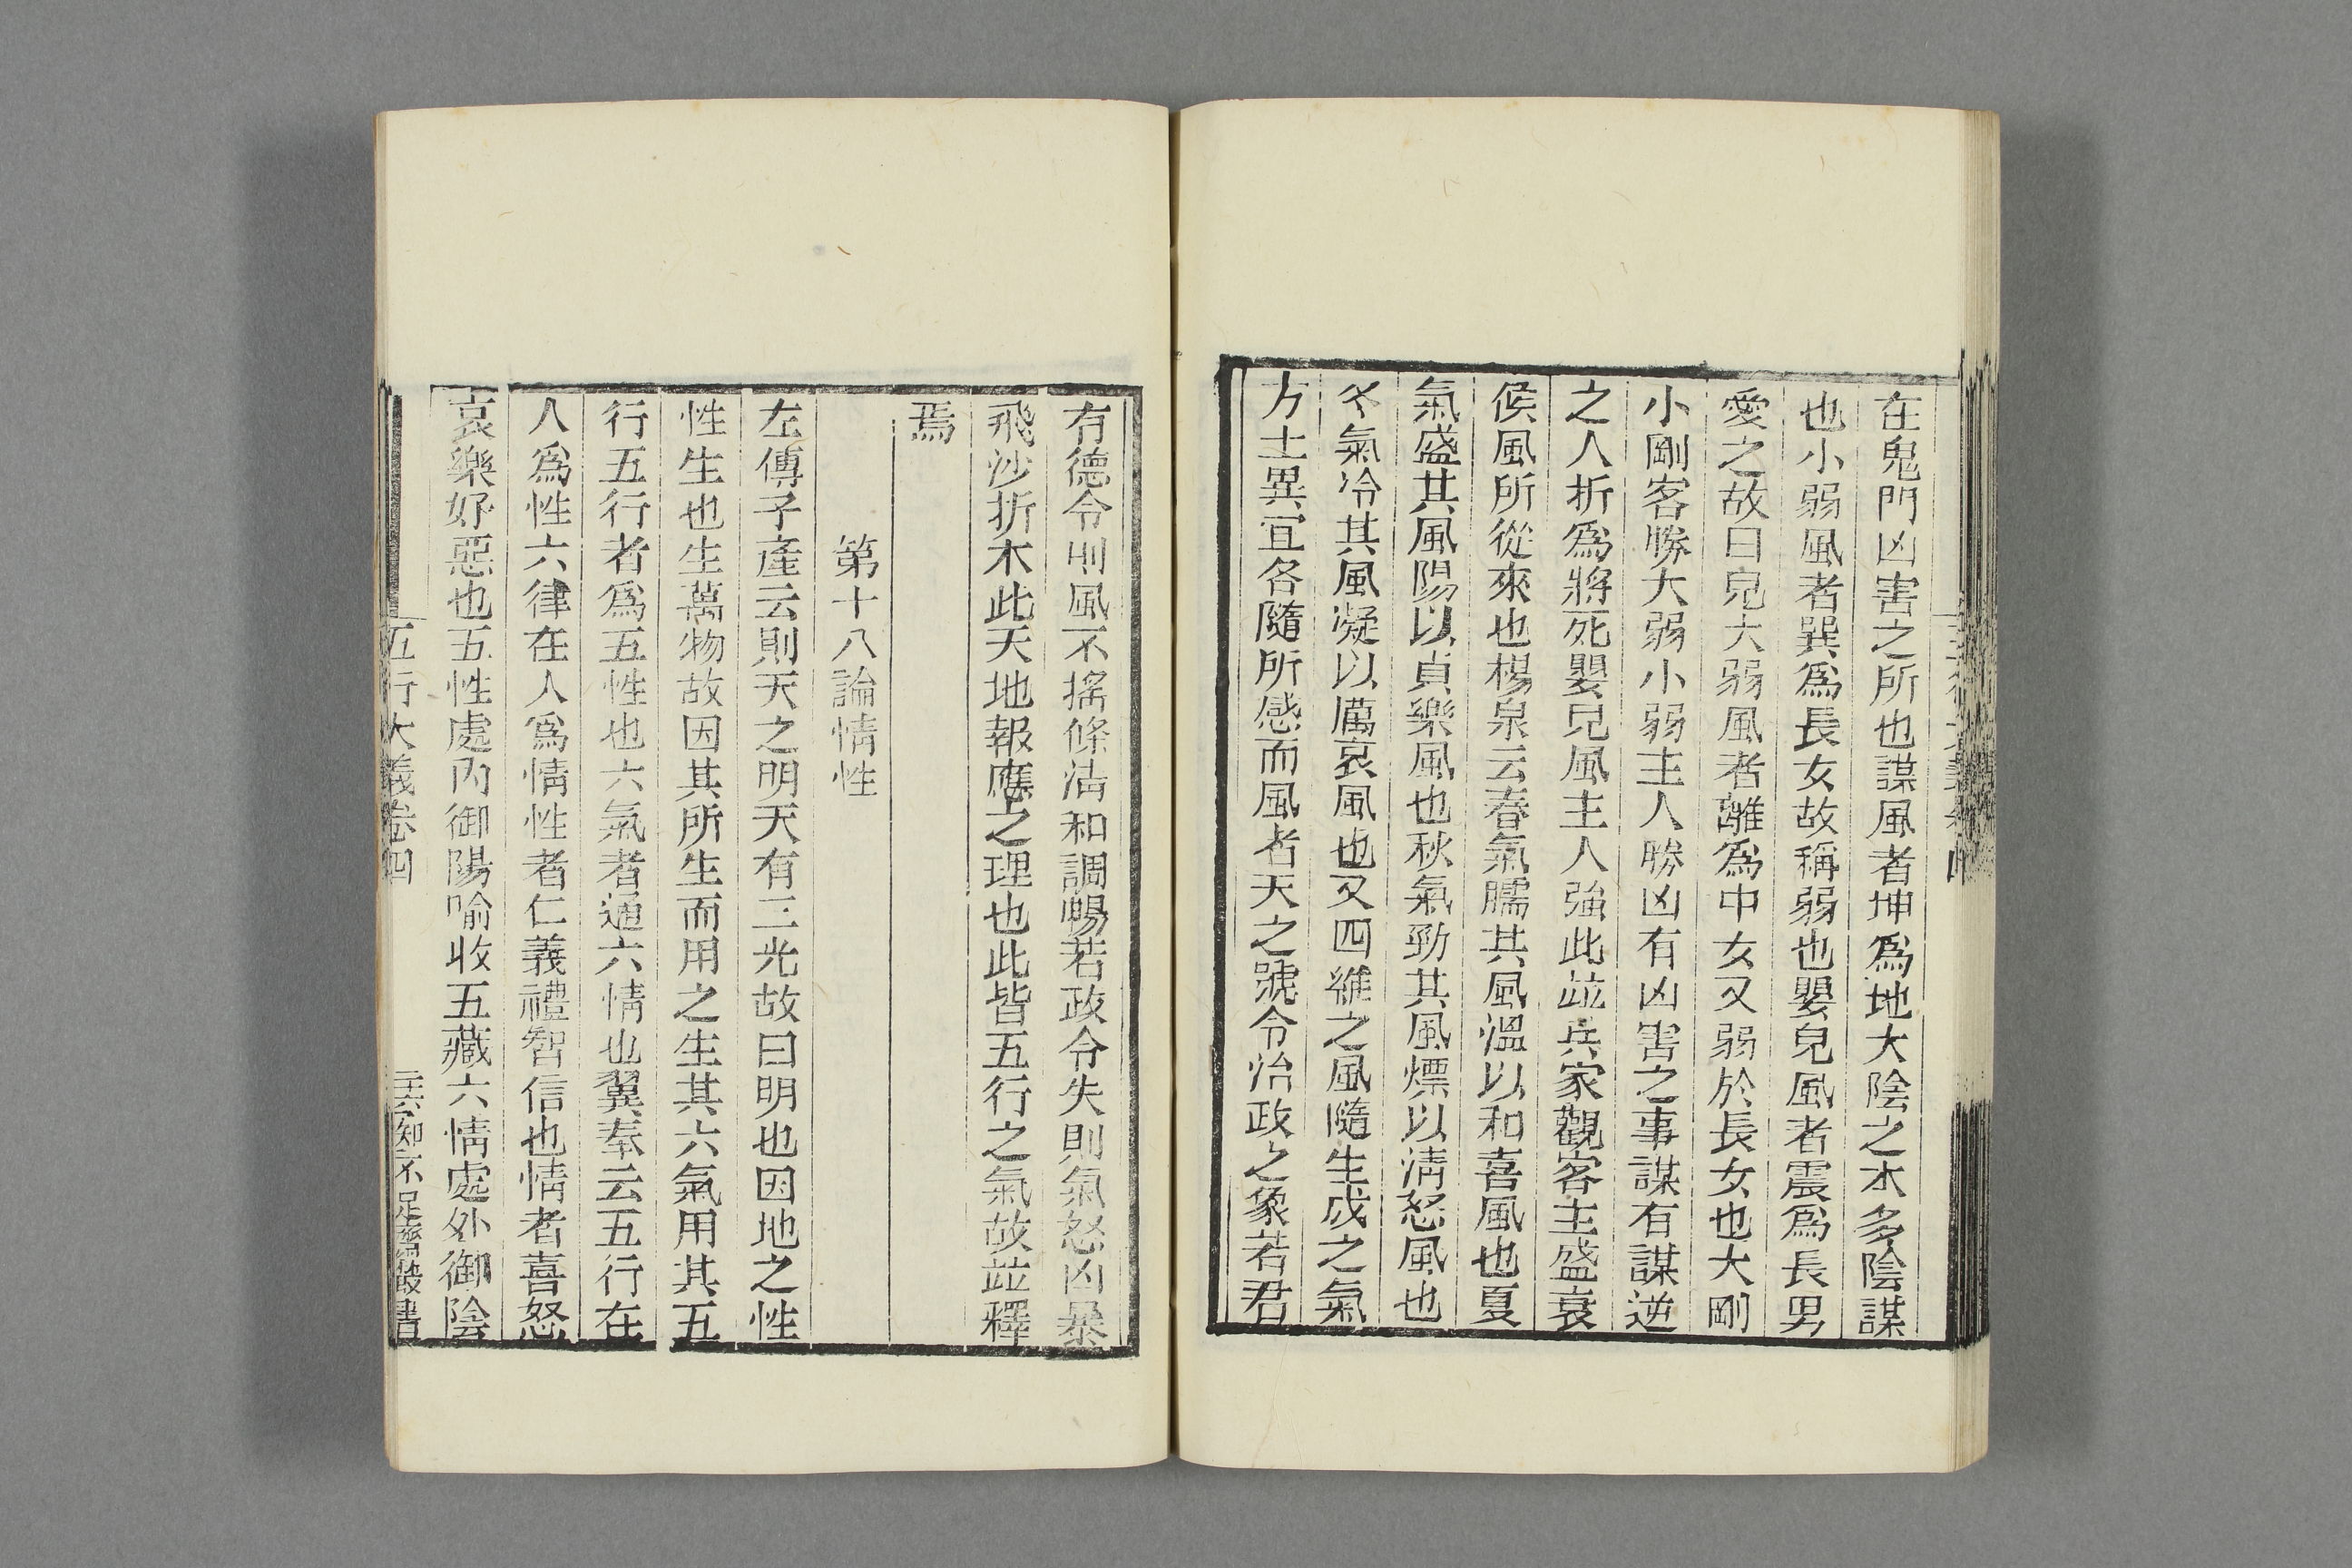 在鬼門凶害之所也謀風者坤爲地大陰之本多陰謀
也小弱風者巽爲長女故稱弱也嬰兒風者震爲長男
愛之故曰兒大弱風者離爲中女又弱於長女也大剛
小剛客勝大弱小弱主人勝凶有凶害之事謀有謀逆
之人折爲將死嬰兒風主人強此竝兵家觀客主盛衰
候風所從來也楊泉云春氣臑其風溫以和喜風也夏
氣盛其風陽以貞樂風也秋氣勁其風熛以淸怒風也
冬氣冷其風凝以厲哀風也又四維之風隨生成之氣
方土異宜各隨所感而風者天之號令治政之象若君
有德令則風不搖條淸和調暢若政令失則氣怒凶暴
飛沙折木此天地報應之理也此皆五行之氣故竝釋
焉
第十八論情性
左傳子產云則天之明天有三光故曰明也因地之性
性生也生萬物故因其所生而用之生其六氣用其五
行五行者爲五性也六氣者通六情也翼奉云五行在
人爲性六律在人爲情性者仁義禮智信也情者喜怒
哀樂好惡也五性處內御陽喻收五藏六情處外御陰
五行大義卷四
知不足齋叢書